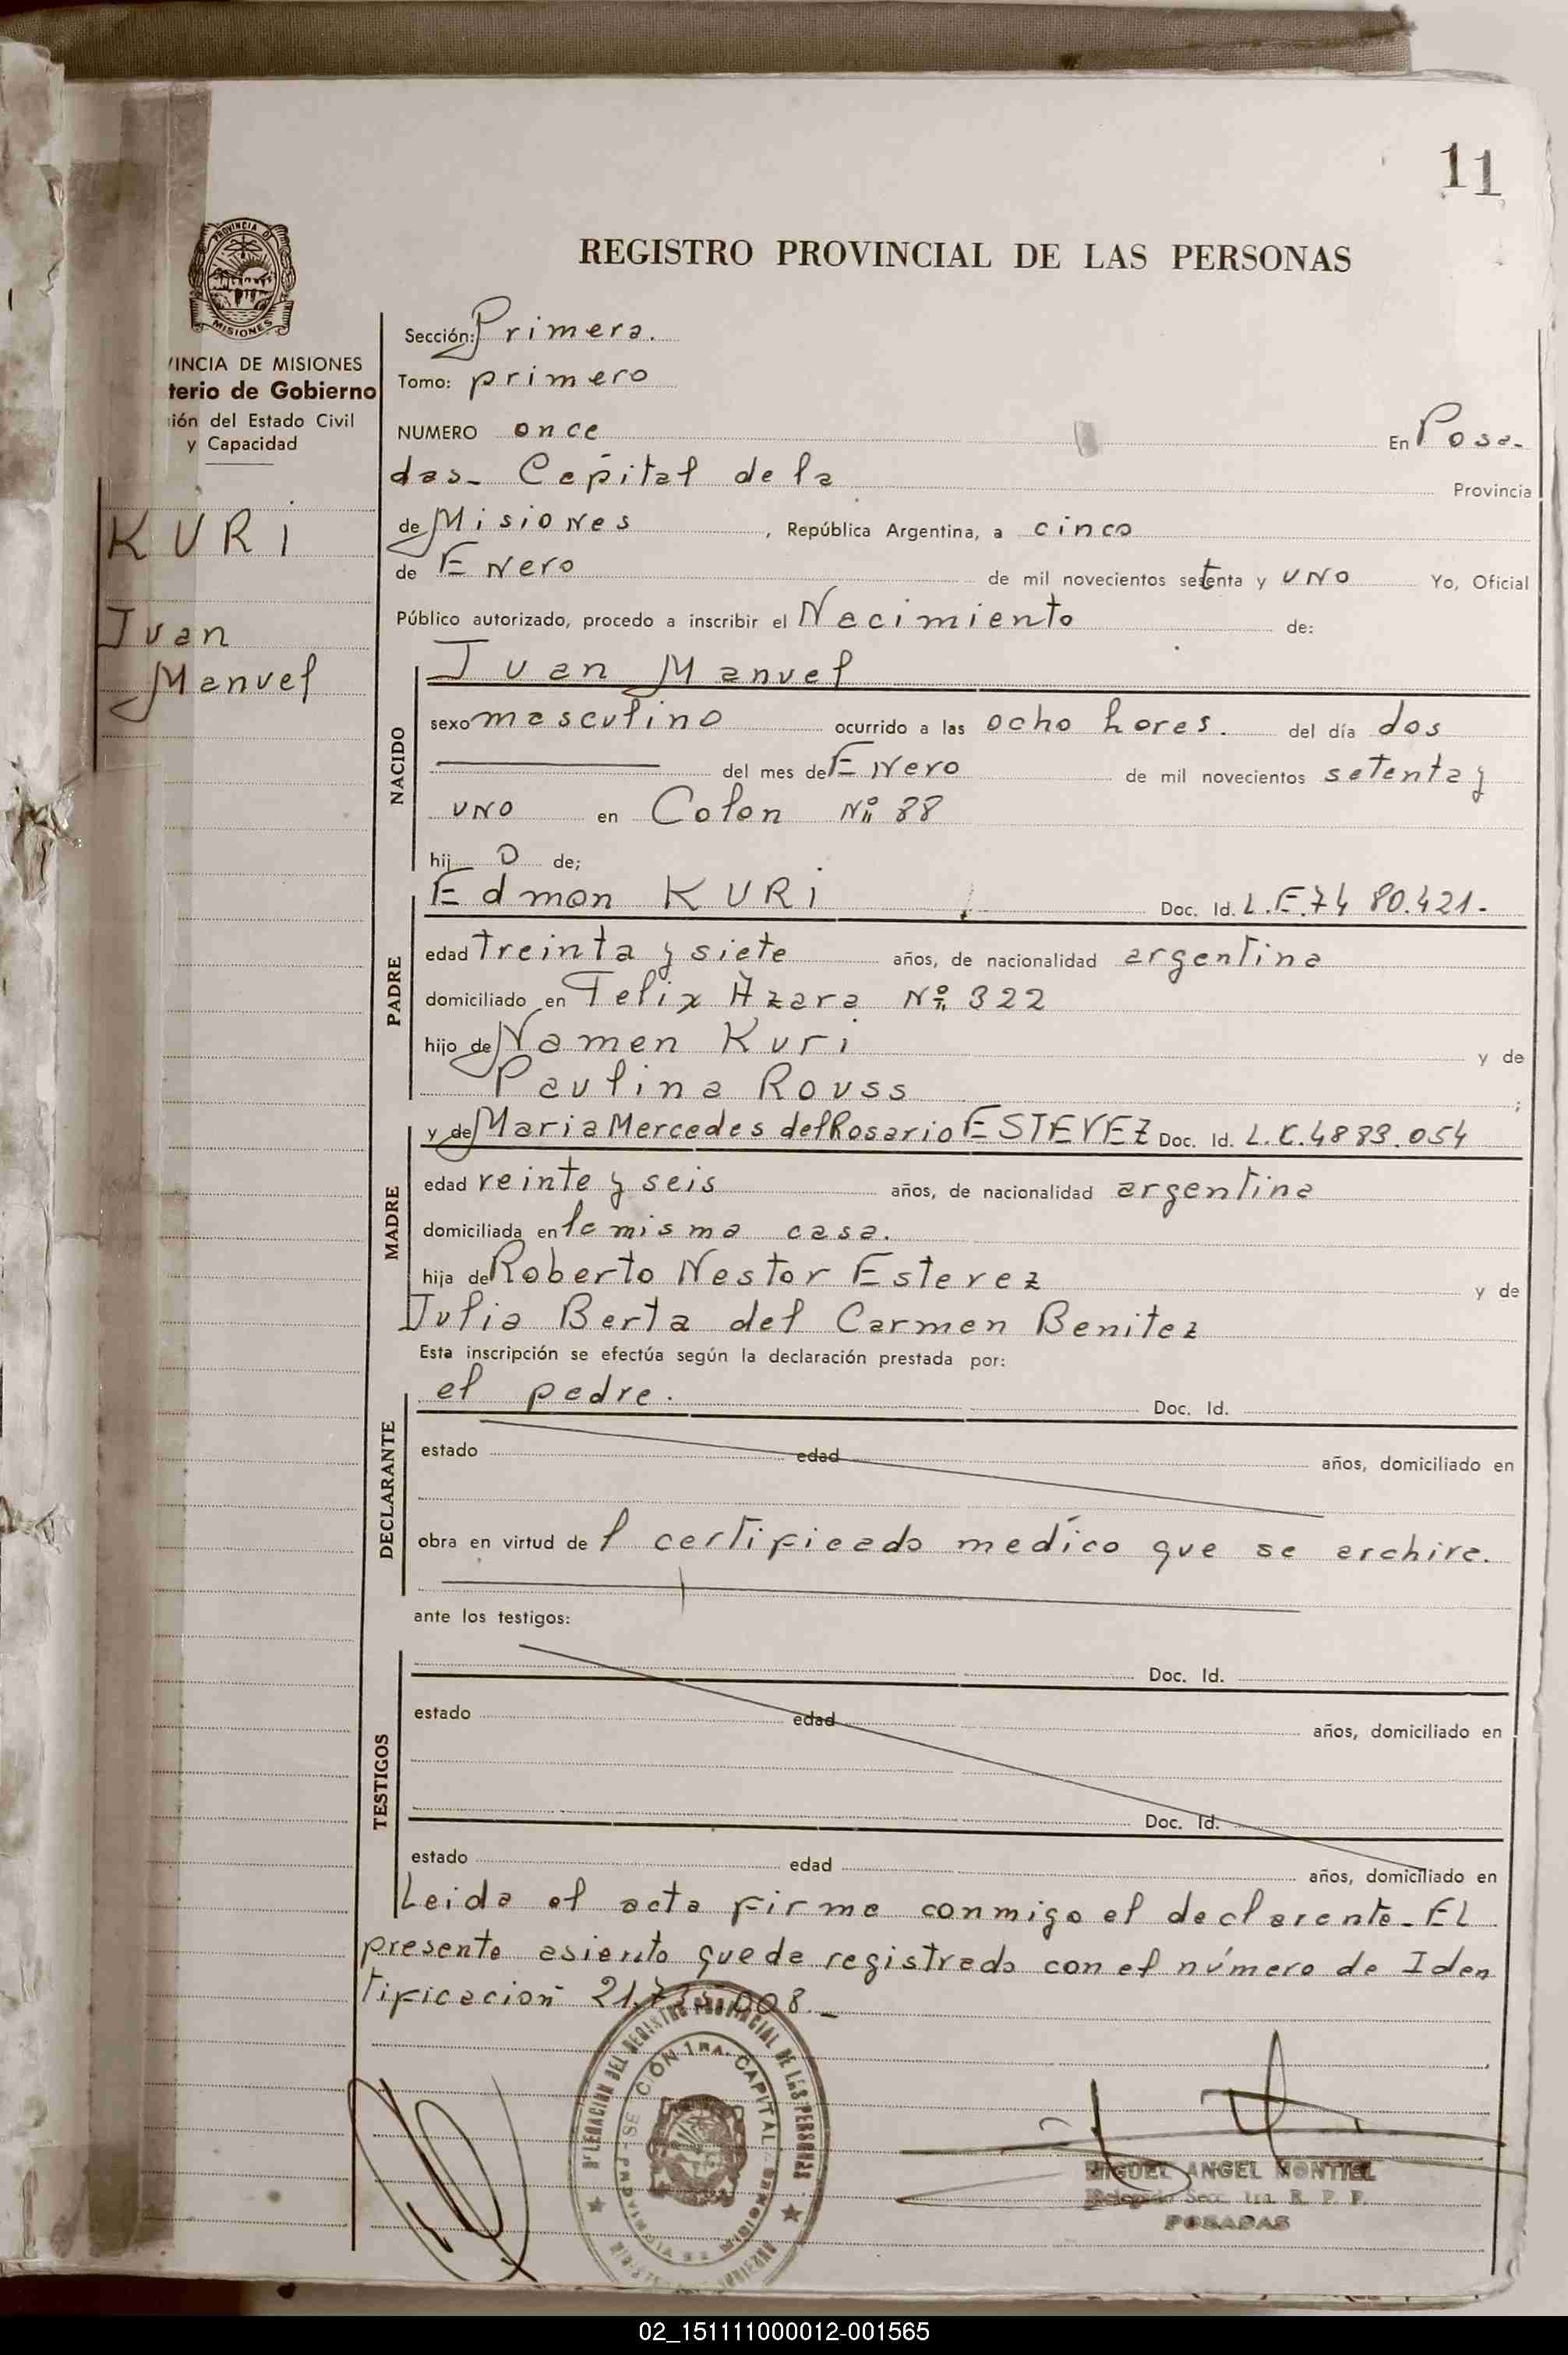 11
PROVINCIA D
MISIONES
REGISTRO PROVINCIAL DE LAS PERSONAS
VINCIA DE MISIONES
terio de Gobierno
ión del Estado Civil
y Capacidad
KURi
Juan
Manuel
Sección: Primera.
Tomo: primero
NUMERO once En Posa-
das- Capital de la Provincia
de Misiones , República Argentina, a cinco
de Enero de mil novecientos setenta y uno Yo, Oficial
Público autorizado, procedo a inscribir el Nacimiento de:
NACIDO
Juan Manuel
sexo masculino ocurrido a las ocho horas. del día dos
del mes de Enero de mil novecientos setenta y
uno en Colon Nº 88
hij o de;
PADRE
Edmon KURi Doc. Id. L.E.74 80.421.
edad treinta y siete años, de nacionalidad argentina
domiciliado en Felix Azara Nº 322
hijo de Namen Kuri y de
Paulina Rouss ;
MADRE
y de Maria Mercedes del Rosario ESTEVEZ Doc. Id. L.C.4883.054
edad veinte y seis años, de nacionalidad argentina
domiciliada en la misma casa.
hija de Roberto Nestor Estevez y de
Julia Berta del Carmen Benitez
Esta inscripción se efectúa según la declaración prestada por:
DECLARANTE
el padre. Doc. Id.
estado edad años, domiciliado en
obra en virtud de l certificado medíco que se archiva.
ante los testigos:
TESTIGOS
Doc. Id.
estado edad años, domiciliado en
Doc. Id.
estado edad años, domiciliado en
Leida el acta firma conmigo el declarante- EL
presente asiento queda registrado con el número de Iden
tificacion 21.735.008.-
DELEGACION DEL REGISTRO PROVINCIAL DE LAS PERSONAS
SECCION 1RA. CAPITAL
MIGUEL ANGEL MONTIEL
Delegado Secc. 1ra. R. P. P.
POSADAS
02_151111000012-001565